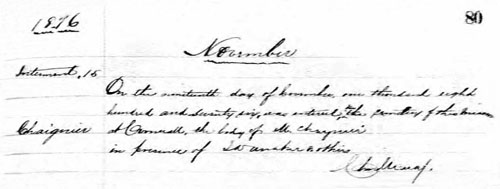 1876
80
November
Interment. 15
On the nineteenth day of November one thousand eight
hundred and seventy six, was interred, in the cemetery of this mission
Chaignier
at, the body of Mr Chaignier
in presence of